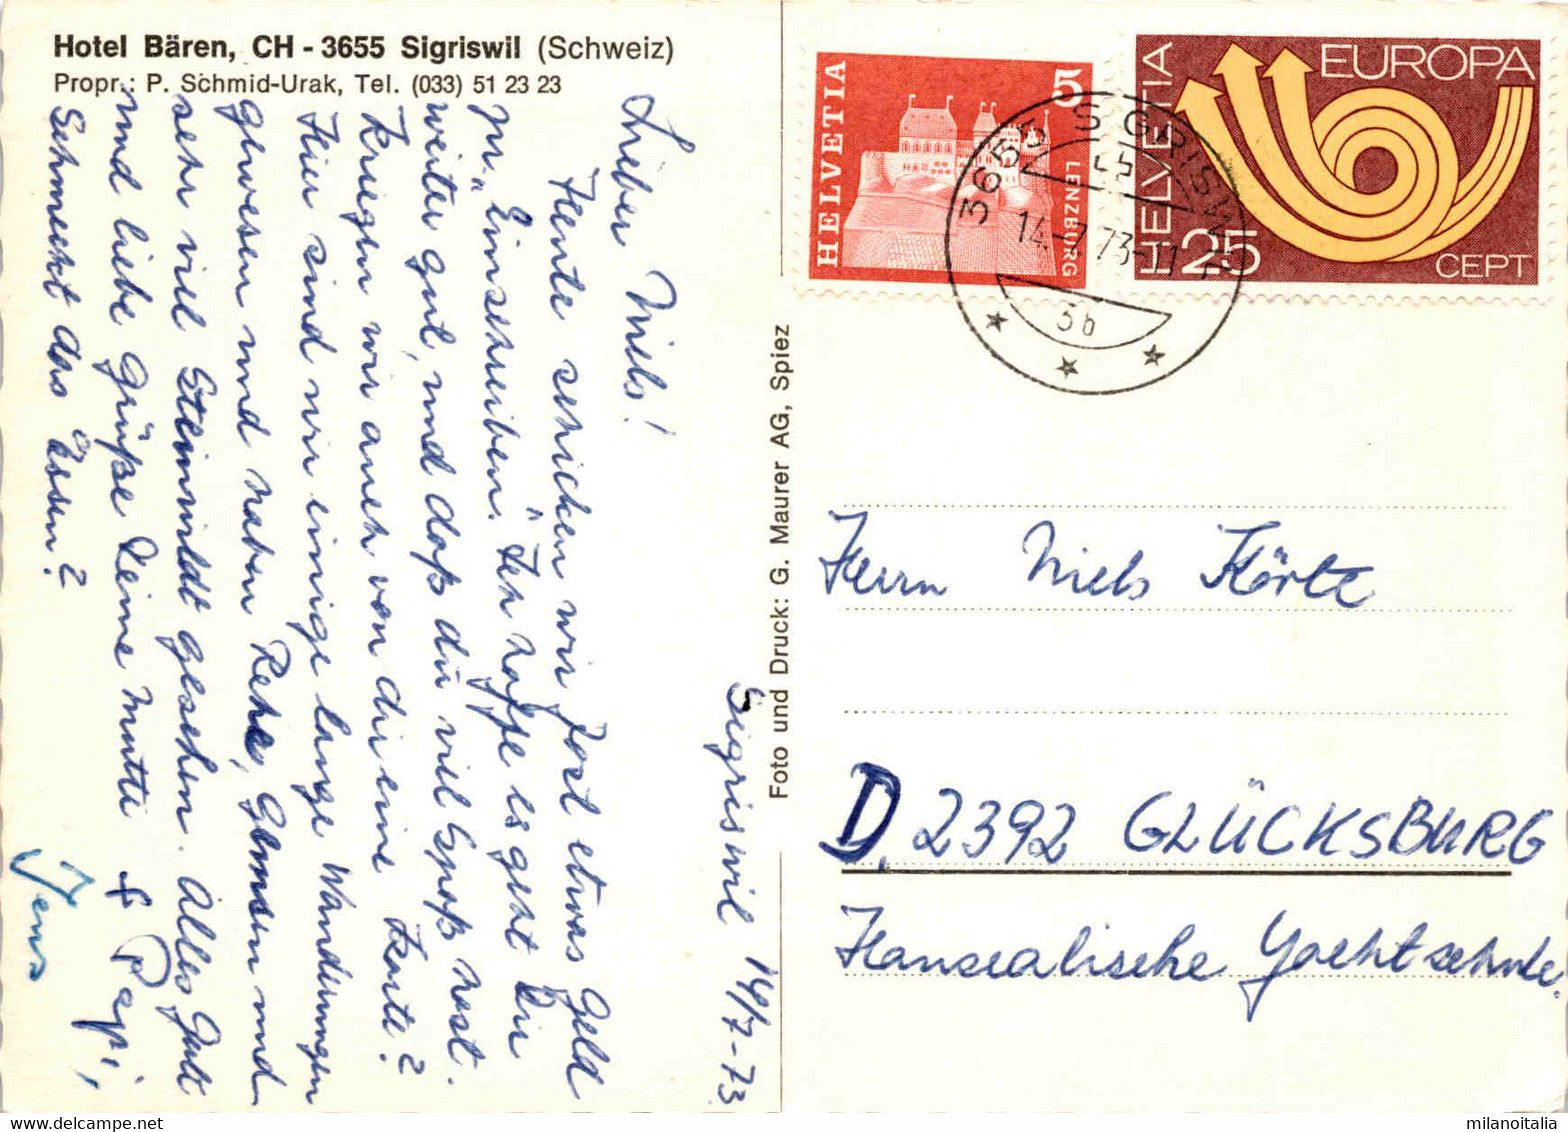 Hotel Bären, CH - 3655 Sigriswil (Schweiz)
Propr.: P. Schmid-Urak, Tel. (033) 51 23 23
Sigriswil 14/7-73
Lieber Niels!
Heute schicken wir Post etwas Geld
pr. "Einschreiben". Ich hoffe es geht Dir
weiter gut, und daß du viel Spaß hast.
Kriegen wir auch von dir eine Karte?
Hier sind wir einige lange Wanderungen
gewesen und haben Rehe, Gemsen und
sehr viel Steinwildt gesehen. Alles Gute
und liebe Grüße Deine Mutti + Papi,
Schmeckt das Essen?
Jens
Foto und Druck: G. Maurer AG, Spiez
HELVETIA
5
LENZBURG
HELVETIA
EUROPA
25
CEPT
3655 SIGRISWIL
14.-7.73-11
3b
Herrn Niels Körte
D. 2392 GLÜCKSBURG
Hanseatische Yachtschule.
milanoitalia